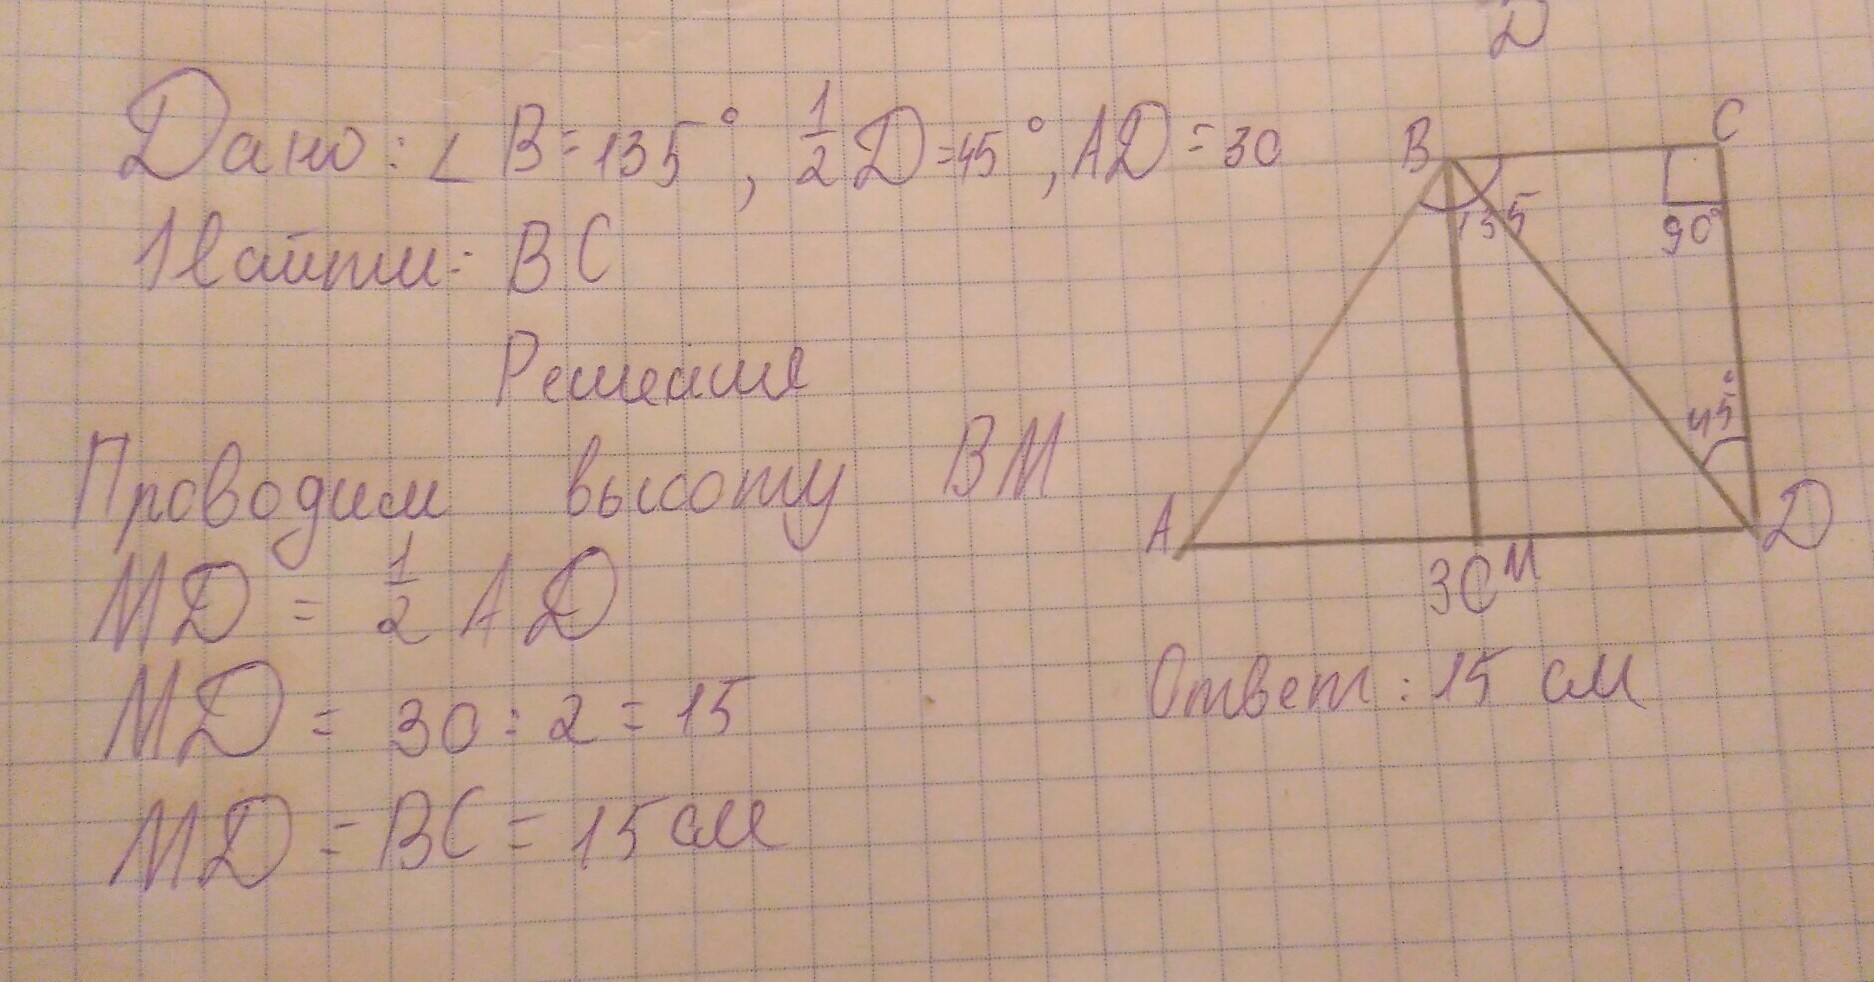 D
Дано: ∠ B = 135°, 1/2 D = 45°, AD = 30
Найти: BC
Решение
Проводим высоту BM
MD = 1/2 AD
MD = 30 : 2 = 15
MD = BC = 15 см
B
C
135
90°
45°
A
D
M
30
Ответ: 15 см